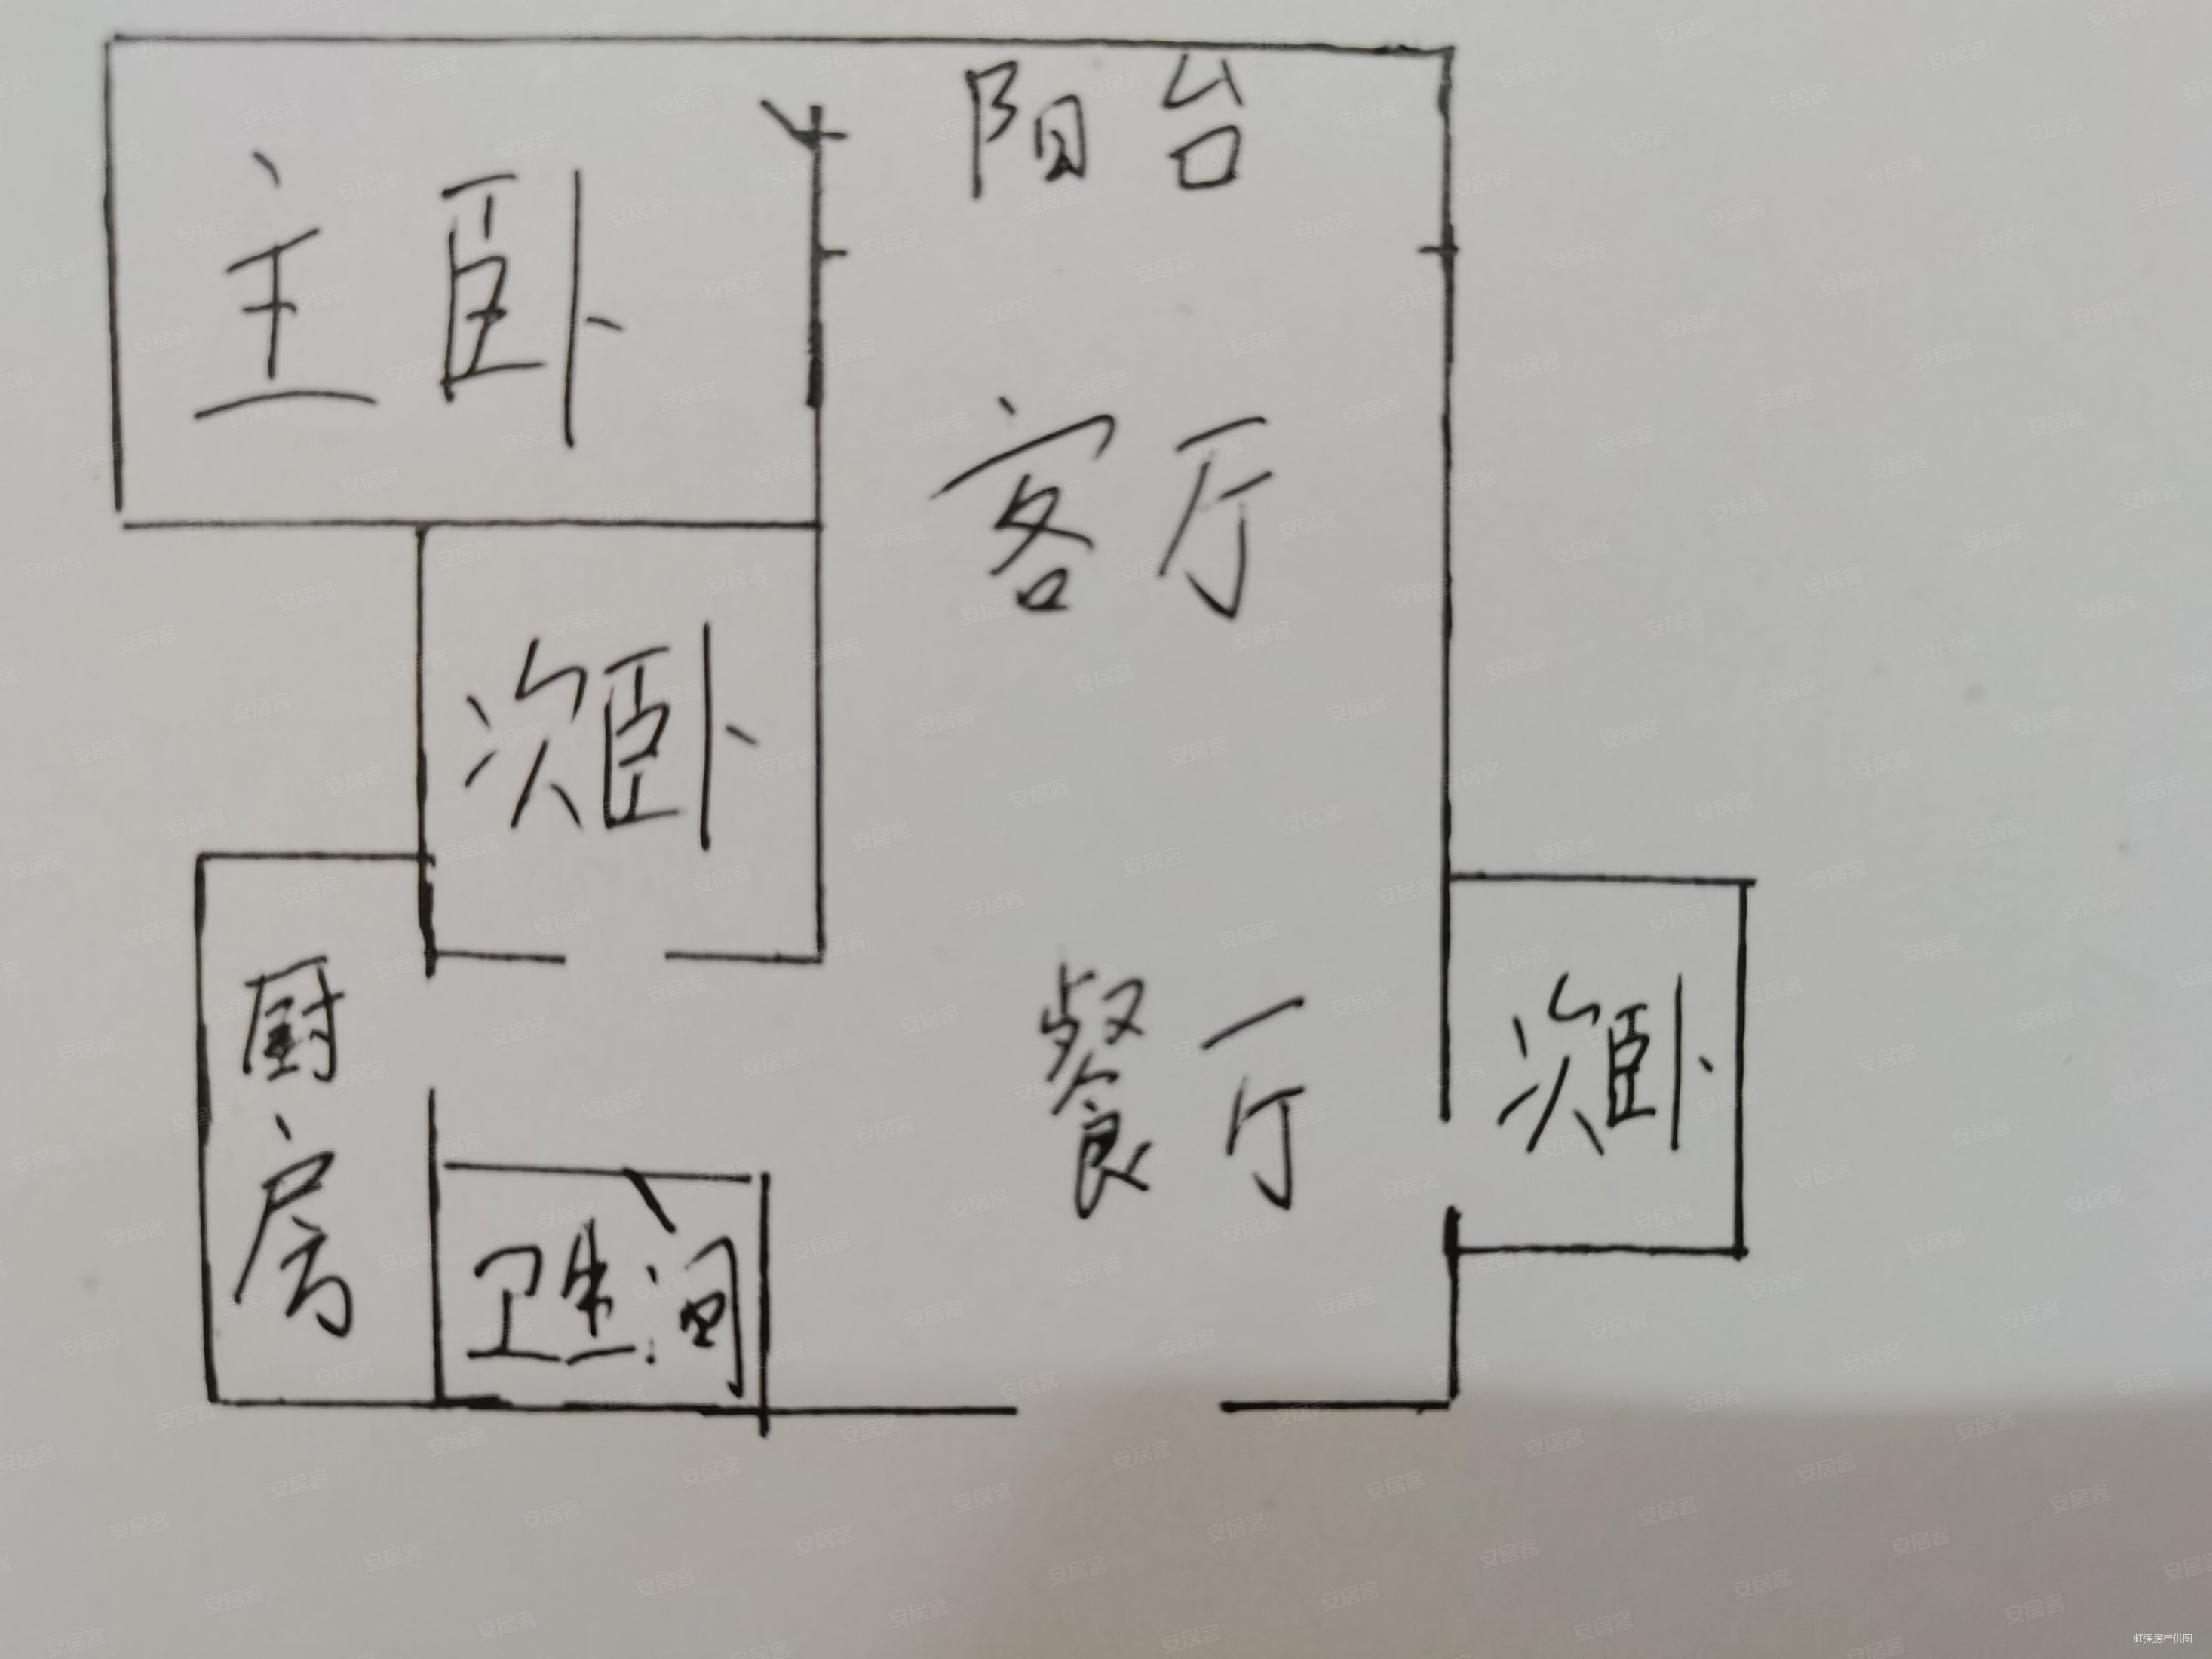 阳台
主卧
客厅
次卧
厨房
餐厅
次卧
卫生间
安居客
虹强房产供图